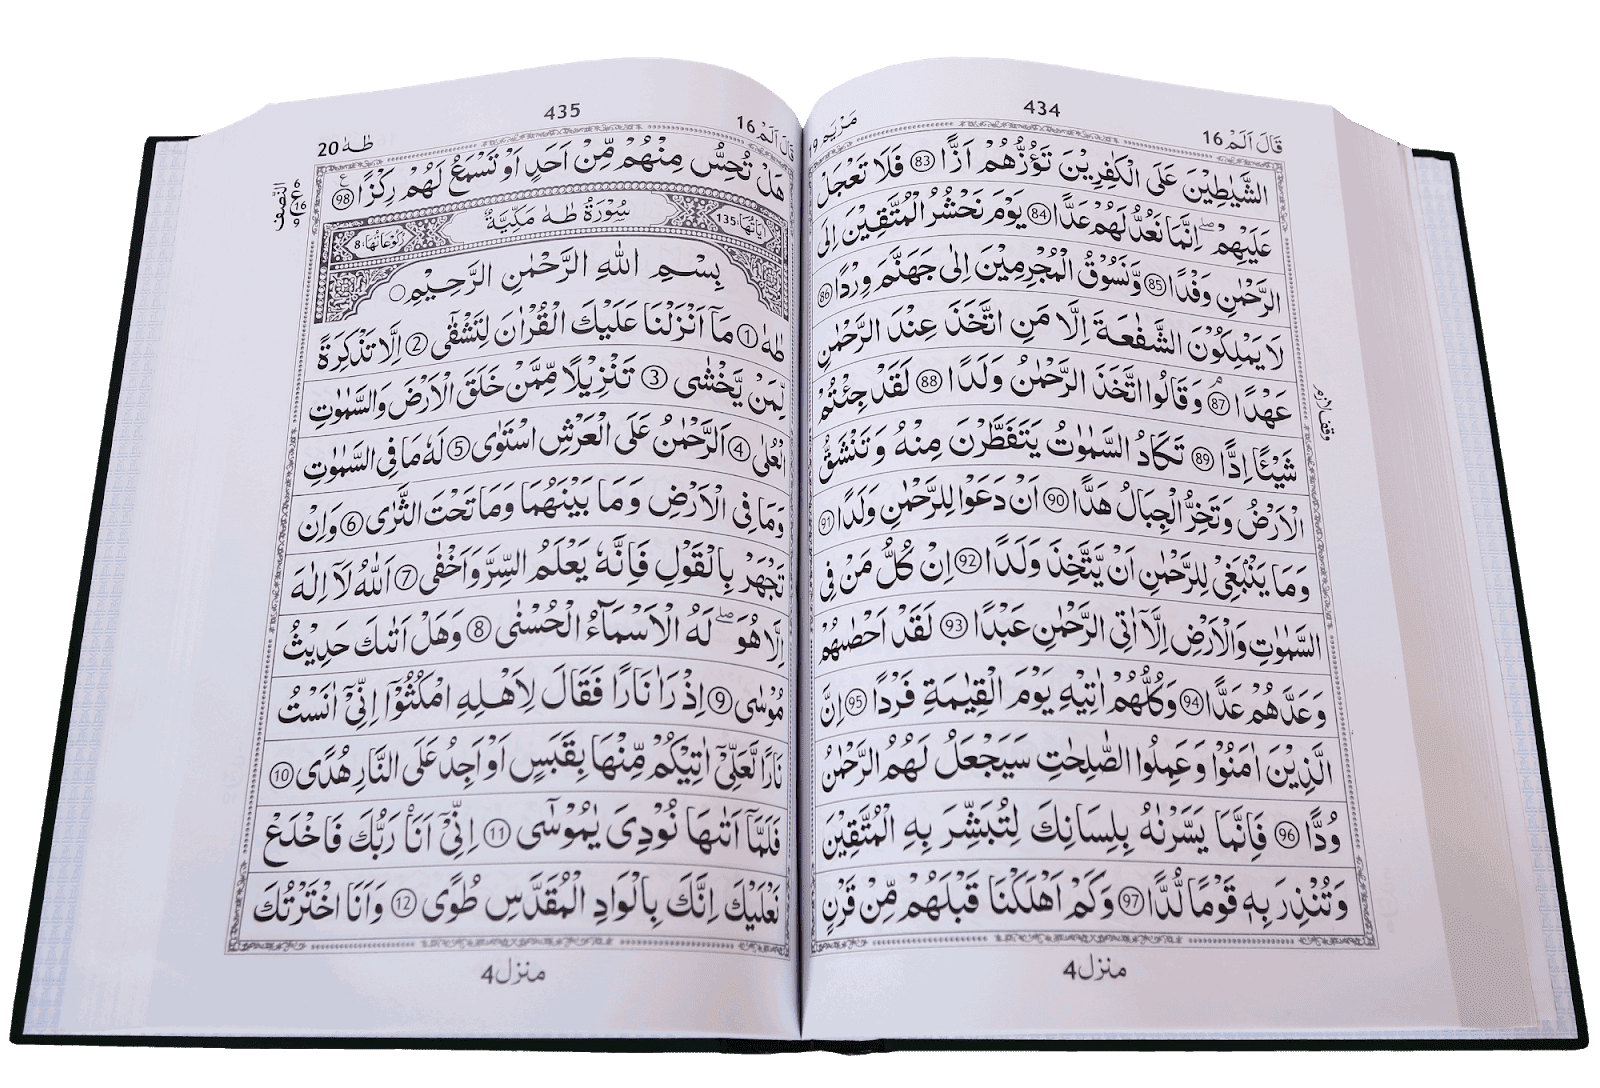 434
قَالَ اَلَمْ 16
مَرْيَم 19
الشَّيٰطِيْنَ عَلَى الْكٰفِرِيْنَ تَؤُزُّهُمْ اَزًّا 83 فَلَا تَعْجَلْ
عَلَيْهِمْ ۖ اِنَّمَا نَعُدُّ لَهُمْ عَدًّا 84 يَوْمَ نَحْشُرُ الْمُتَّقِيْنَ اِلَى
الرَّحْمٰنِ وَفْدًا 85 وَّنَسُوْقُ الْمُجْرِمِيْنَ اِلٰى جَهَنَّمَ وِرْدًا 86
لَا يَمْلِكُوْنَ الشَّفٰعَةَ اِلَّا مَنِ اتَّخَذَ عِنْدَ الرَّحْمٰنِ
عَهْدًا 87 وَقَالُوا اتَّخَذَ الرَّحْمٰنُ وَلَدًا 88 لَقَدْ جِئْتُمْ
شَيْئًا اِدًّا 89 تَكَادُ السَّمٰوٰتُ يَتَفَطَّرْنَ مِنْهُ وَتَنْشَقُّ
الْاَرْضُ وَتَخِرُّ الْجِبَالُ هَدًّا 90 اَنْ دَعَوْا لِلرَّحْمٰنِ وَلَدًا 91
وَمَا يَنْبَغِيْ لِلرَّحْمٰنِ اَنْ يَّتَّخِذَ وَلَدًا 92 اِنْ كُلُّ مَنْ فِي
السَّمٰوٰتِ وَالْاَرْضِ اِلَّا اٰتِي الرَّحْمٰنِ عَبْدًا 93 لَقَدْ اَحْصٰىهُمْ
وَعَدَّهُمْ عَدًّا 94 وَكُلُّهُمْ اٰتِيْهِ يَوْمَ الْقِيٰمَةِ فَرْدًا 95 اِنَّ
الَّذِيْنَ اٰمَنُوْا وَعَمِلُوا الصّٰلِحٰتِ سَيَجْعَلُ لَهُمُ الرَّحْمٰنُ
وُدًّا 96 فَاِنَّمَا يَسَّرْنٰهُ بِلِسَانِكَ لِتُبَشِّرَ بِهِ الْمُتَّقِيْنَ
وَتُنْذِرَ بِهٖ قَوْمًا لُّدًّا 97 وَكَمْ اَهْلَكْنَا قَبْلَهُمْ مِّنْ قَرْنٍ
منزل 4
وقف لازم
435
قَالَ اَلَمْ 16
طٰهٰ 20
هَلْ تُحِسُّ مِنْهُمْ مِّنْ اَحَدٍ اَوْ تَسْمَعُ لَهُمْ رِكْزًا 98 ع
اٰيَاتُهَا: 135
سُوْرَةُ طٰهٰ مَكِّيَّةٌ
رُكُوْعَاتُهَا: 8
بِسْمِ اللّٰهِ الرَّحْمٰنِ الرَّحِيْمِ
طٰهٰ 1 مَآ اَنْزَلْنَا عَلَيْكَ الْقُرْاٰنَ لِتَشْقٰٓى 2 اِلَّا تَذْكِرَةً
لِّمَنْ يَّخْشٰى 3 تَنْزِيْلًا مِّمَّنْ خَلَقَ الْاَرْضَ وَالسَّمٰوٰتِ
الْعُلٰى 4 اَلرَّحْمٰنُ عَلَى الْعَرْشِ اسْتَوٰى 5 لَهٗ مَا فِي السَّمٰوٰتِ
وَمَا فِي الْاَرْضِ وَمَا بَيْنَهُمَا وَمَا تَحْتَ الثَّرٰى 6 وَاِنْ
تَجْهَرْ بِالْقَوْلِ فَاِنَّهٗ يَعْلَمُ السِّرَّ وَاَخْفٰى 7 اَللّٰهُ لَآ اِلٰهَ
اِلَّا هُوَ ۖ لَهُ الْاَسْمَآءُ الْحُسْنٰى 8 وَهَلْ اَتٰىكَ حَدِيْثُ
مُوْسٰى 9 اِذْ رَاٰ نَارًا فَقَالَ لِاَهْلِهِ امْكُثُوْٓا اِنِّيْٓ اٰنَسْتُ
نَارًا لَّعَلِّيْٓ اٰتِيْكُمْ مِّنْهَا بِقَبَسٍ اَوْ اَجِدُ عَلَى النَّارِ هُدًى 10
فَلَمَّآ اَتٰىهَا نُوْدِيَ يٰمُوْسٰى 11 اِنِّيْٓ اَنَا۠ رَبُّكَ فَاخْلَعْ
نَعْلَيْكَ اِنَّكَ بِالْوَادِ الْمُقَدَّسِ طُوًى 12 وَاَنَا اخْتَرْتُكَ
منزل 4
6
ع
16
9
النصف